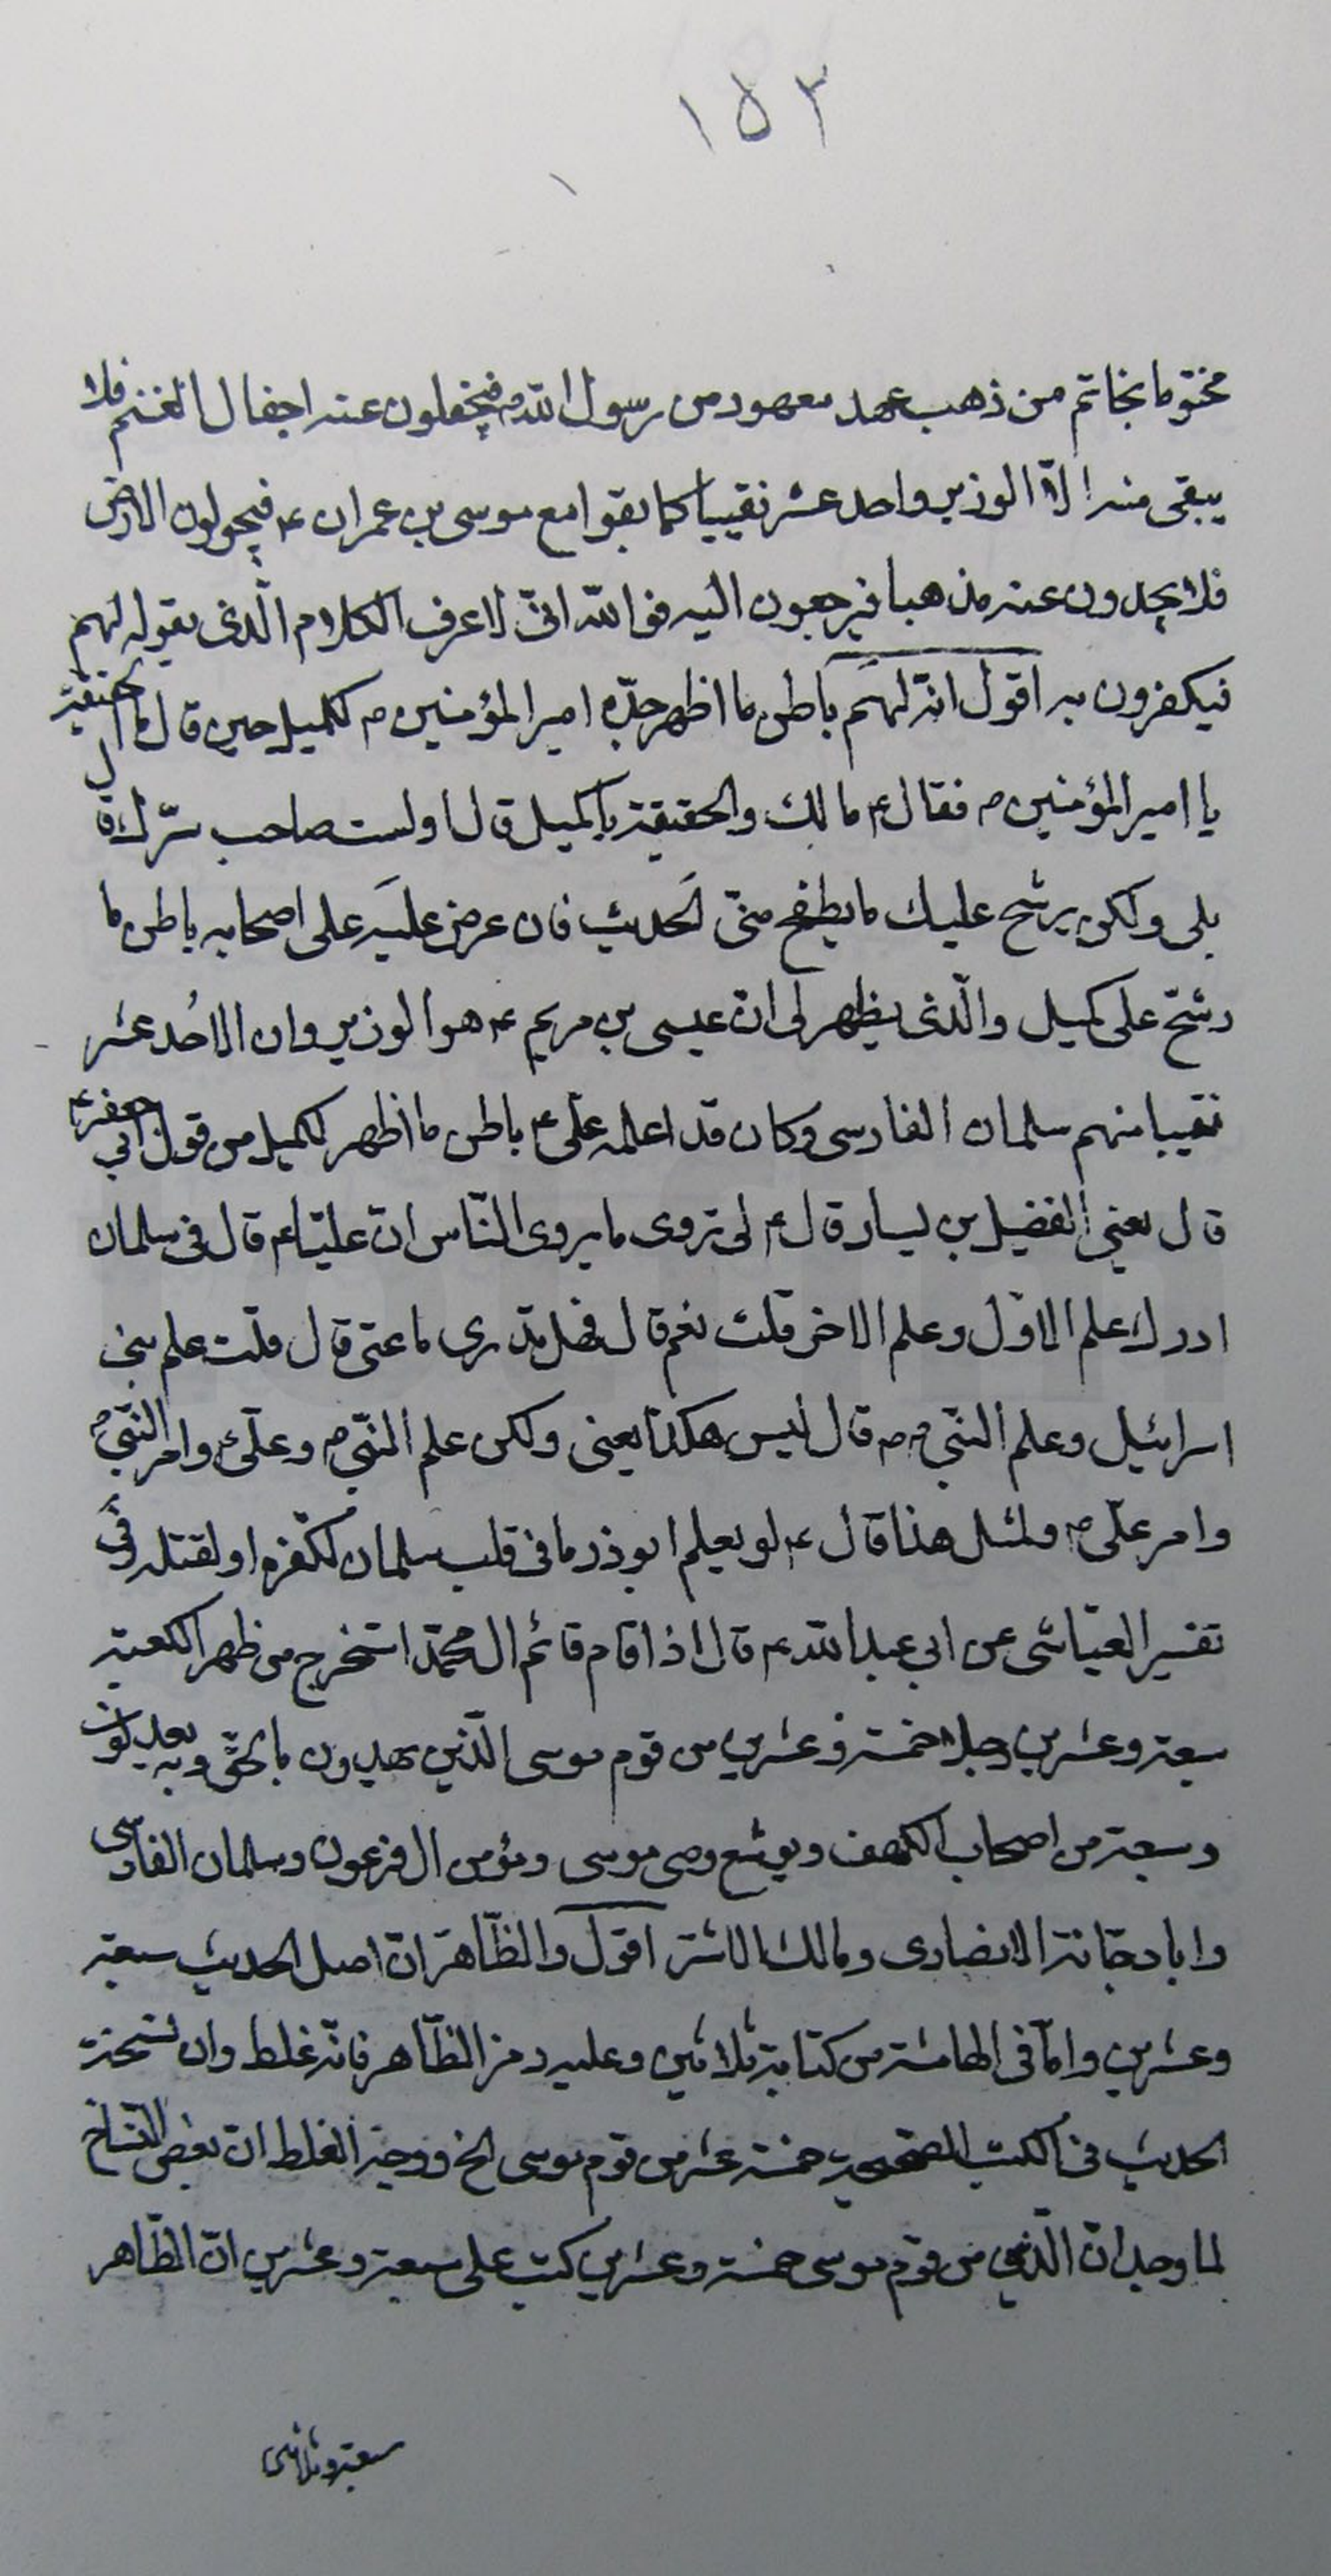 ١٥٣
مختوما بخاتم من ذهب عهد معهود من رسول الله ص فيجفلون عنه اجفال الغنم فلا
يبقى منه الّا الوزير واحد عشر نقيبا كما بقوا مع موسى بن عمران ع فيجولون الارض
فلا يجدون عنه مذهبا فيرجعون اليه فوالله انّى لاعرف الكلام الّذى يقوله لهم
فيكفرون به اقول انّه لهم باطن ما اظهر جدّه امير المؤمنين ع لكميل حين قال ما الحقيقة
يا امير المؤمنين ع فقال ع مالك والحقيقة يا كميل قال اولست صاحب سرّك قال
بلى ولكن يرشح عليك ما يطفح منّى الحديث فان عرض عليه على اصحابه باطن ما
رشح على كميل والّذى يظهر لى انّ عيسى بن مريم ع هو الوزير وان الاحد عشر
نقيبا منهم سلمان الفارسى وكان قد اعلمه علىّ ع باطن ما اظهر لكميل من قول ابي جعفر ع
قال يعنى الفضيل بن يسار قال ع لى تروى ما يروى النّاس انّ عليّا ع قال فى سلمان
ادرك علم الاوّل وعلم الاخر قلت نعم قال فهل تدرى ما عنى قال قلت علم بنى
اسرائيل وعلم النّبي ص قال ليس هكذا يعنى ولكن علم النّبي ص وعلىّ ع وامر النّبي ص
وامر علىّ ع ولمثل هذا قال ع لو يعلم ابوذر ما فى قلب سلمان لكفّره او لقتله وفى
تفسير العيّاشى عن ابي عبدالله ع قال اذا قام قائم ال محمّد استخرج من ظهر الكعبة
سبعة وعشرين رجلا خمسة وعشرين من قوم موسى الّذين يهدون بالحقّ وبه يعدلون
وسبعة من اصحاب الكهف ويوشع وصى موسى ومؤمن ال فرعون وسلمان الفارسى
وابا دجّانة الانصارى ومالك الاشتر اقول والظّاهر انّ اصل الحديث سبعة
وعشرين وامّا فى الهامشة من كتابة ثلاثين وعليه رمز الظّاهر فانّه غلط وان نسخة
الحديث فى الكتب المصحّحة خمسة عشر من قوم موسى الخ ووجه الغلط انّ بعض النّسّاخ
لما وجد انّ الّذين من قوم موسى خمسة وعشرين كتب على سبعة وعشرين انّ الظّاهر
سبعة وثلاثين